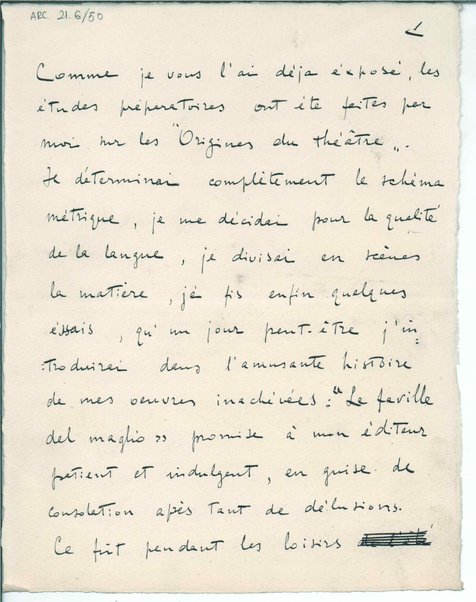 ARC. 21.6/50
1
Comme je vous l'ai déja éxposé, les
études préparatoires ont été faites par
moi sur les "Origines du théâtre„.
Je déterminai complètement le schéma
métrique, je me décidai pour la qualité
de la langue, je divisai en scènes
la matière, je fis enfin quelques
essais, qu'un jour peut-être j'in-
-troduirai dans l'amusante histoire
de mes oeuvres inachévées: "Le faville
del maglio» promise à mon éditeur
patient et indulgent, en guise de
consolation après tant de délusions.
Ce fût pendant les loisirs